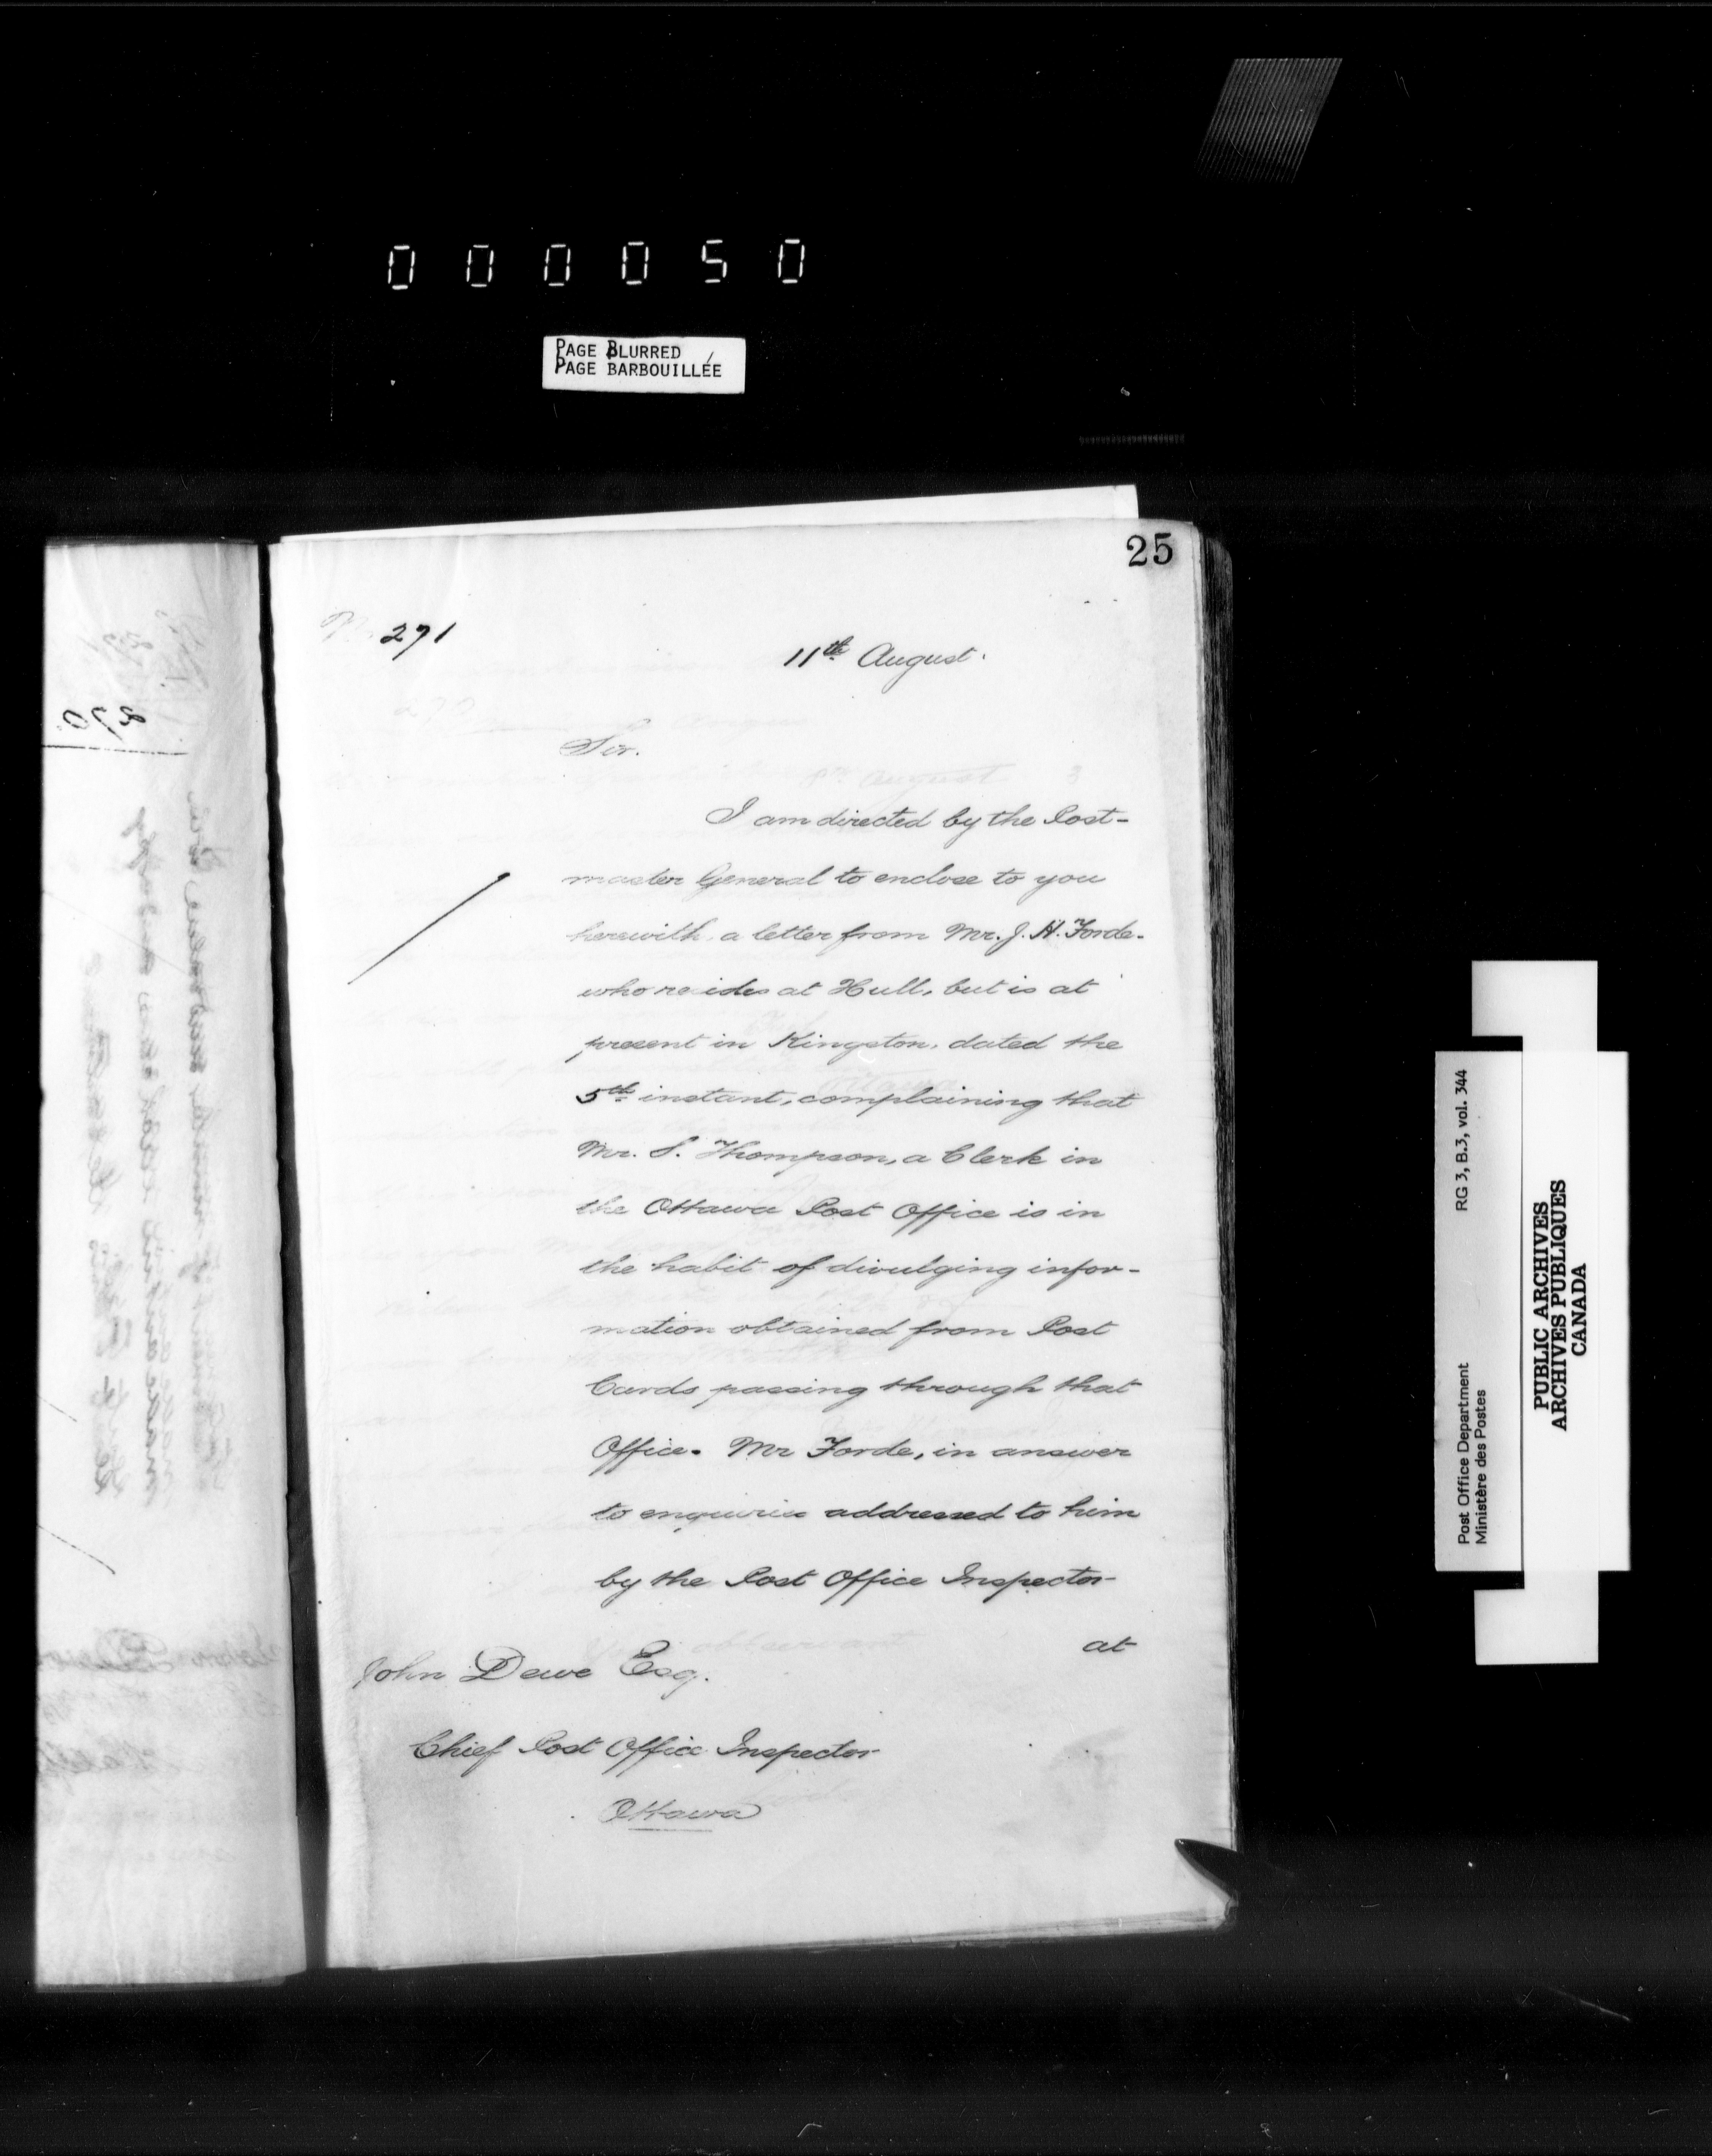 000050
PAGE BLURRED
PAGE BARBOUILLÉE
25
No 271
11th August.
Sir.
I am directed by the Post-
master General to enclose to you
herewith, a letter from Mr. J. H. Forde.
who resides at Hull, but is at
present in Kingston, dated the
5th instant, complaining that
Mr. S. Thompson, a Clerk in
the Ottawa Post Office is in
the habit of divulging infor-
mation obtained from Post
Cards passing through that
Office. Mr Forde, in answer
to enquiries addressed to him
by the Post Office Inspector
at
John Dewe Esq.
Chief Post Office Inspector
Ottawa
270
Post Office Department
Ministère des Postes
RG 3, B.3, vol. 344
PUBLIC ARCHIVES
ARCHIVES PUBLIQUES
CANADA